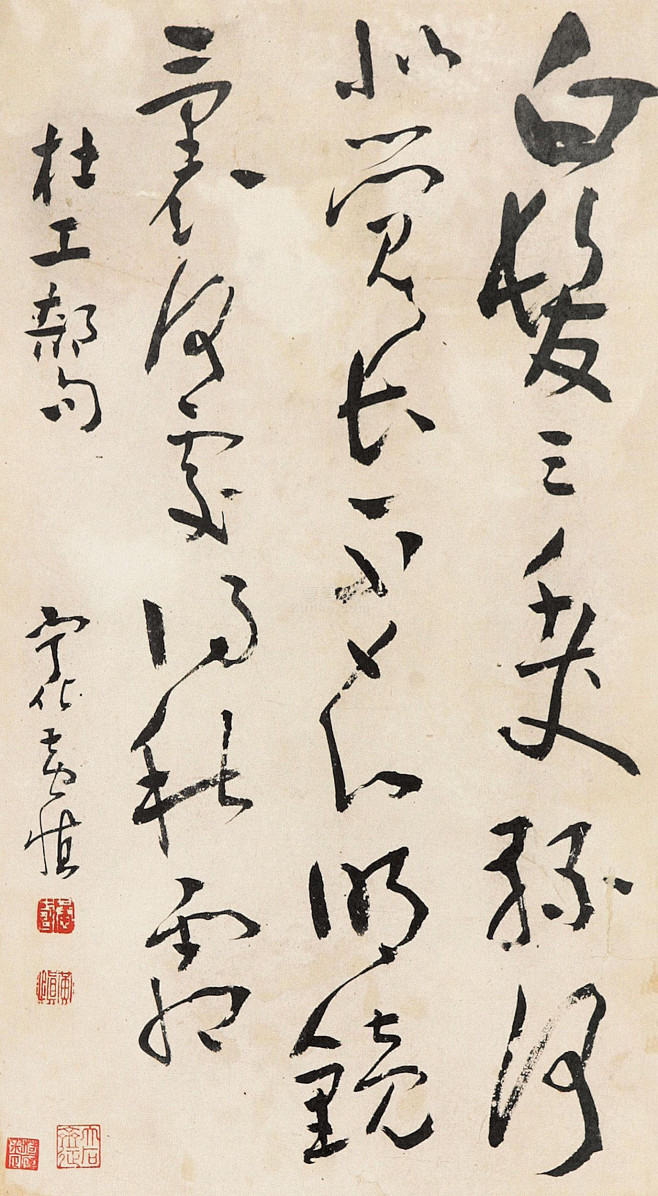 白髮三千丈緣何
似覺長不知明鏡
裏何處得秋霜
杜工部句
寧化黃慎